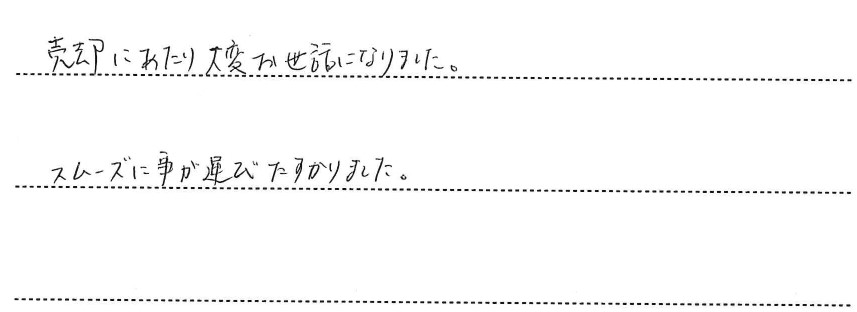 売却にあたり大変お世話になりました。
スムーズに事が運びたすかりました。